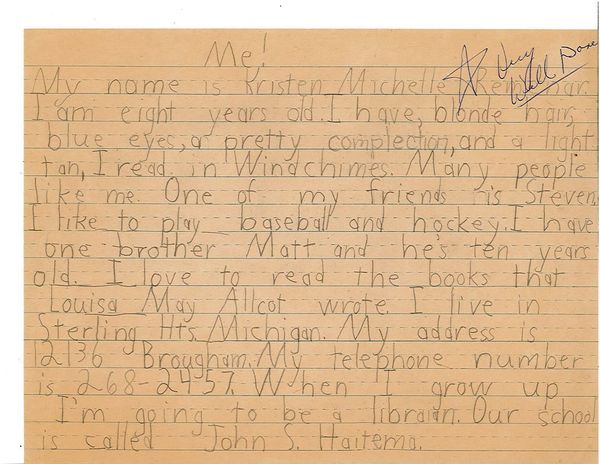 Me!
Very
Well Done
My name is Kristen Michelle
I am eight years old. I have, blonde hair,
blue eyes, a pretty complection, and a light
tan, I read in Windchimes. Many people
like me. One of my friends is Steven.
I like to play baseball and hockey. I have
one brother Matt and he's ten years
old. I love to read the books that
Louisa May Allcot wrote. I live in
Sterling Hts. Michigan. My address is
12136 Brougham. My telephone number
is 268-2457. When I grow up
I'm going to be a libraian. Our school
is called John S. Haitema.